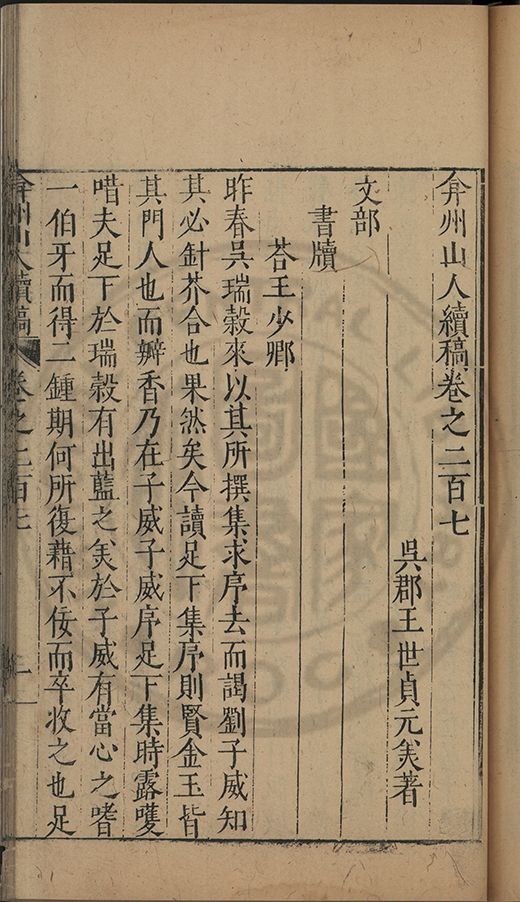 弇州山人續稿卷之二百七
吳郡王世貞元美著
文部
書牘
荅王少卿
昨春吳瑞穀來以其所撰集求序去而謁劉子威知
其必針芥合也果然矣今讀足下集序則賢金玉皆
其門人也而瓣香乃在子威子威序足下集時露嚄
唶夫足下於瑞穀有出藍之美於子威有當心之嗜
一伯牙而得二鍾期何所復藉不佞而卒收之也足
弇州山人續稿
卷之二百七
一